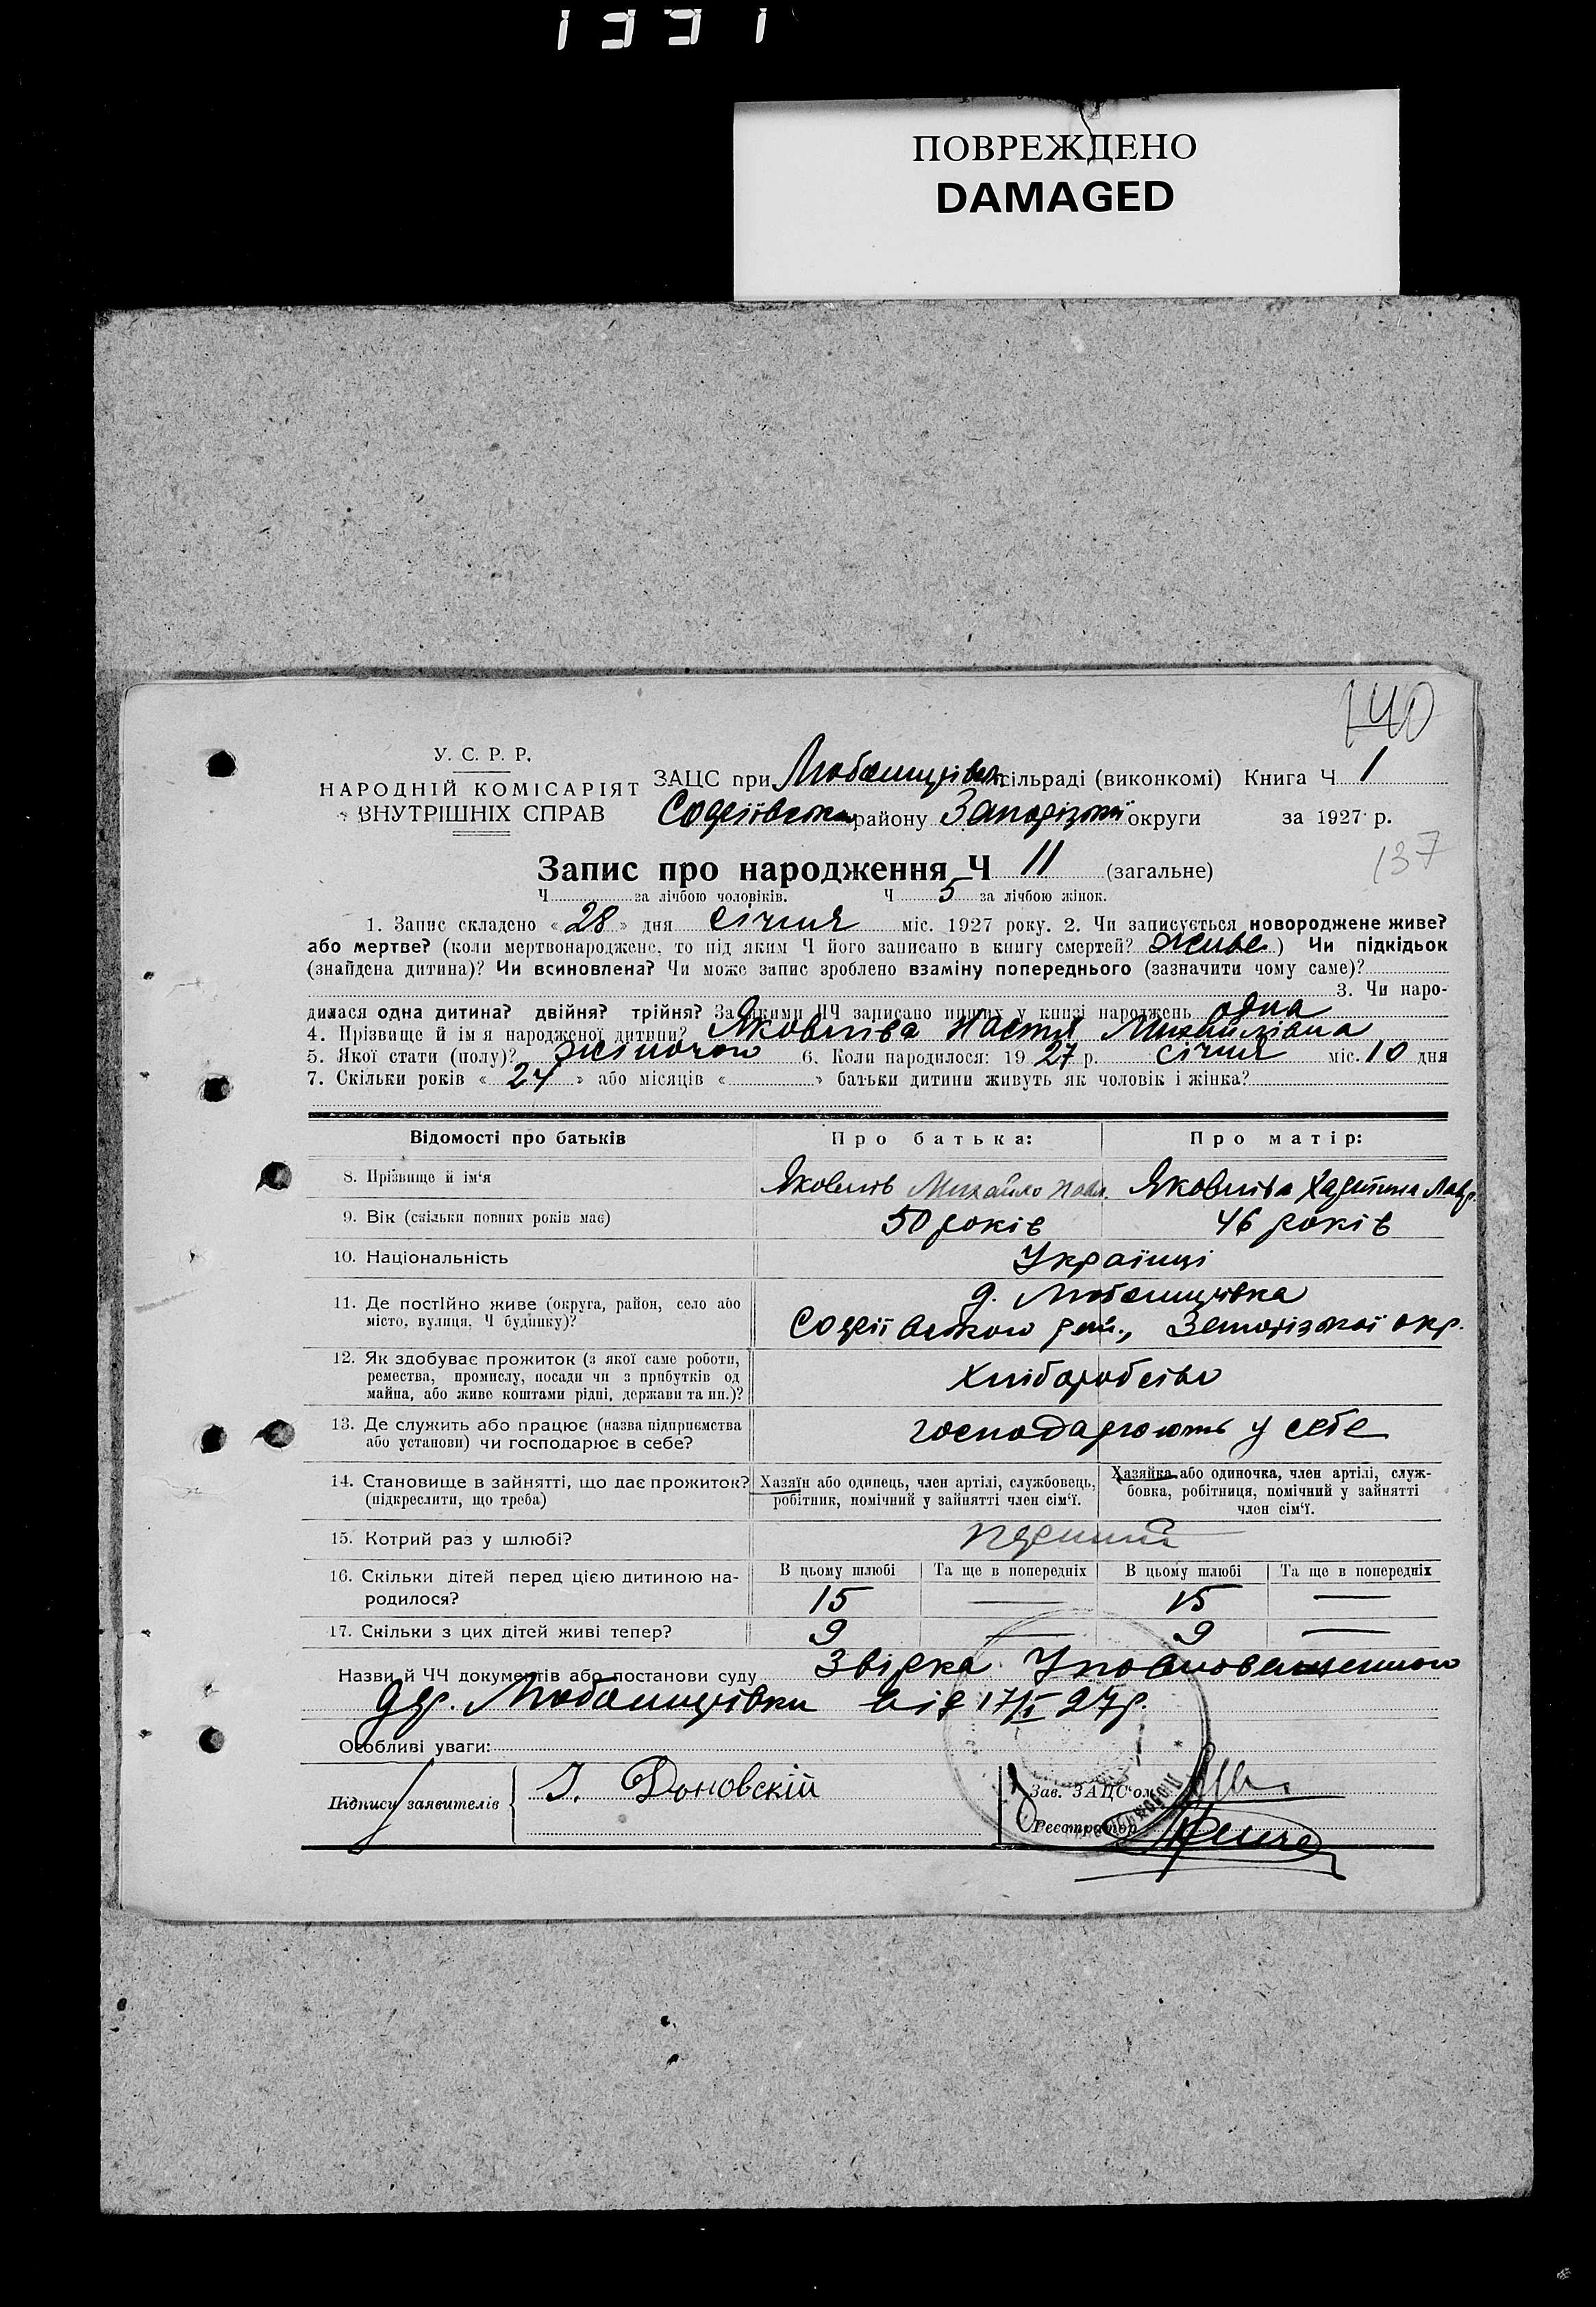 1991
ПОВРЕЖДЕНО
DAMAGED
140
У. С. Р. Р.
НАРОДНІЙ КОМІСАРІЯТ
ВНУТРІШНІХ СПРАВ
ЗАЦС при Любомирівськ сільраді (виконкомі) Книга Ч 1
Софіївськ району Запорізької округи за 1927 р.
137
Запис про народження Ч 11 (загальне)
Ч за лічбою чоловіків. Ч 5 за лічбою жінок.
1. Запис складено «28» дня січня міс. 1927 року. 2. Чи записується новороджене живе?
або мертве? (коли мертвонароджене, то під яким Ч його записано в книгу смертей? живе) Чи підкідьок
(знайдена дитина)? Чи всиновлена? Чи може запис зроблено взаміну попереднього (зазначити чому саме)?
3. Чи наро-
дилася одна дитина? двійня? трійня? За якими ЧЧ записано инших у книзі народжень одна
4. Прізвище й ім я народженої дитини? Яковлєва Настя Михайлівна
5. Якої стати (полу)? жіночого 6. Коли народилося: 1927 р. січня міс. 10 дня
7. Скільки років «27» або місяців « » батьки дитини живуть як чоловік і жінка?
Відомості про батьків Про батька: Про матір:
8. Прізвище й ім'я Яковлів Михайло Яковлєва Лавр.
9. Вік (скільки повних років має) 50 років 46 років
10. Національність Українці
11. Де постійно живе (округа, район, село або
місто, вулиця, Ч будинку)?
д. Любомирівка
Софіївського рай., Запорізької окр.
12. Як здобуває прожиток (з якої саме роботи,
ремества, промислу, посади чи з прибутків од
майна, або живе коштами рідні, держави та ин.)?
Хліборобство
13. Де служить або працює (назва підприємства
або установи) чи господарює в себе?
господарюють у себе
14. Становище в зайнятті, що дає прожиток?
(підкреслити, що треба)
Хазяїн або одинець, член артілі, службовець,
робітник, помічний у зайнятті член сім'ї.
Хазяйка або одиночка, член артілі, служ-
бовка, робітниця, помічний у зайнятті
член сім'ї.
15. Котрий раз у шлюбі? перший
16. Скільки дітей перед цією дитиною на-
родилося?
В цьому шлюбі Та ще в попередніх В цьому шлюбі Та ще в попередніх
15 — 15 —
17. Скільки з цих дітей живі тепер? 9 — 9 —
Назви й ЧЧ документів або постанови суду Звірка Уповноваженного
дер. Любомирівки від 17/I 27р.
Особливі уваги:
Підписи заявителів
Зав. ЗАЦС'ом
Реєстратор